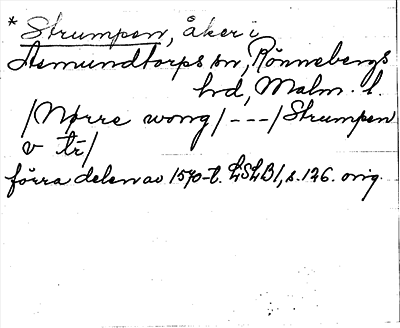 * Strumpen, åker i
Asmundtorps sn, Rönnebergs
hrd, Malm. l.
/Nørre wong/---/Strumpen
v tr/
förra delen av 1570-t. LSLB1, s. 126. orig.